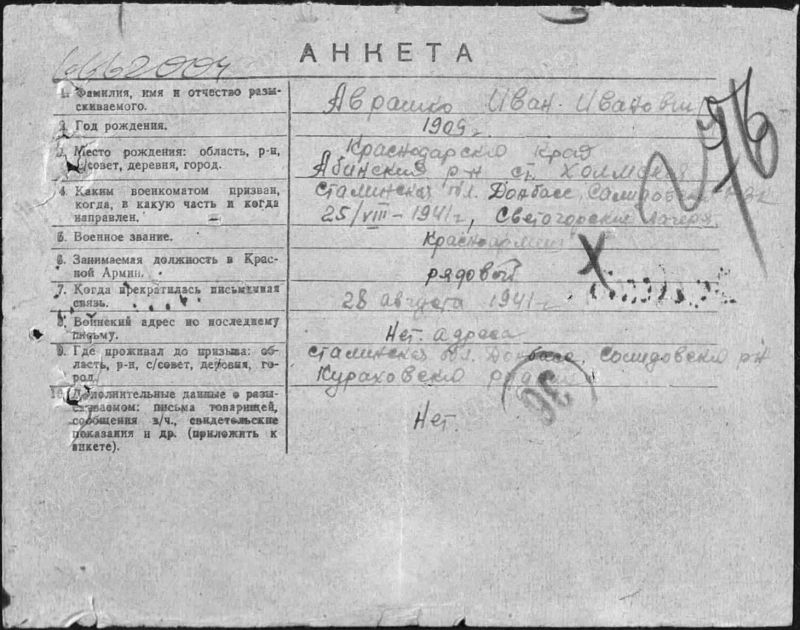 АНКЕТА
6662004
1. Фамилия, имя и отчество разы-
скиваемого.
Аврашко Иван Иванович
2. Год рождения.
1905 г.
3. Место рождения: область, р-н,
с/совет, деревня, город.
Краснодарский Край
Абинский р-н ст. Холмская
4. Каким военкоматом призван,
когда, в какую часть и когда
направлен.
Сталинская обл. Донбасс,
25/VIII-1941г, Светогорские лагеря
5. Военное звание.
Красноармеец
6. Занимаемая должность в Крас-
ной Армии.
рядовой
7. Когда прекратилась письменная
связь.
28 августа 1941 г.
8. Воинский адрес по последнему
письму.
Нет адреса
9. Где проживал до призыва: об-
ласть, р-н, с/совет, деревня, го-
род.
Сталинская обл. Донбасс, Солидовский р-н
Кураховский
10. Дополнительные данные о разы-
скиваемом: письма товарищей,
сообщения в/ч., свидетельские
показания и др. (приложить к
анкете).
Нет.